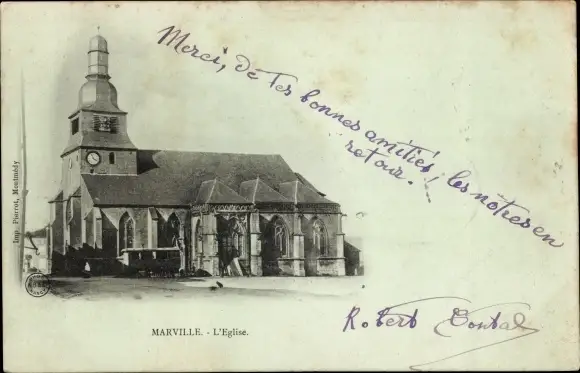 Merci, de tes bonnes amitiés, les notres en
retour.
Imp. Pierrot, Montmédy
MARVILLE. - L'Eglise.
Robert